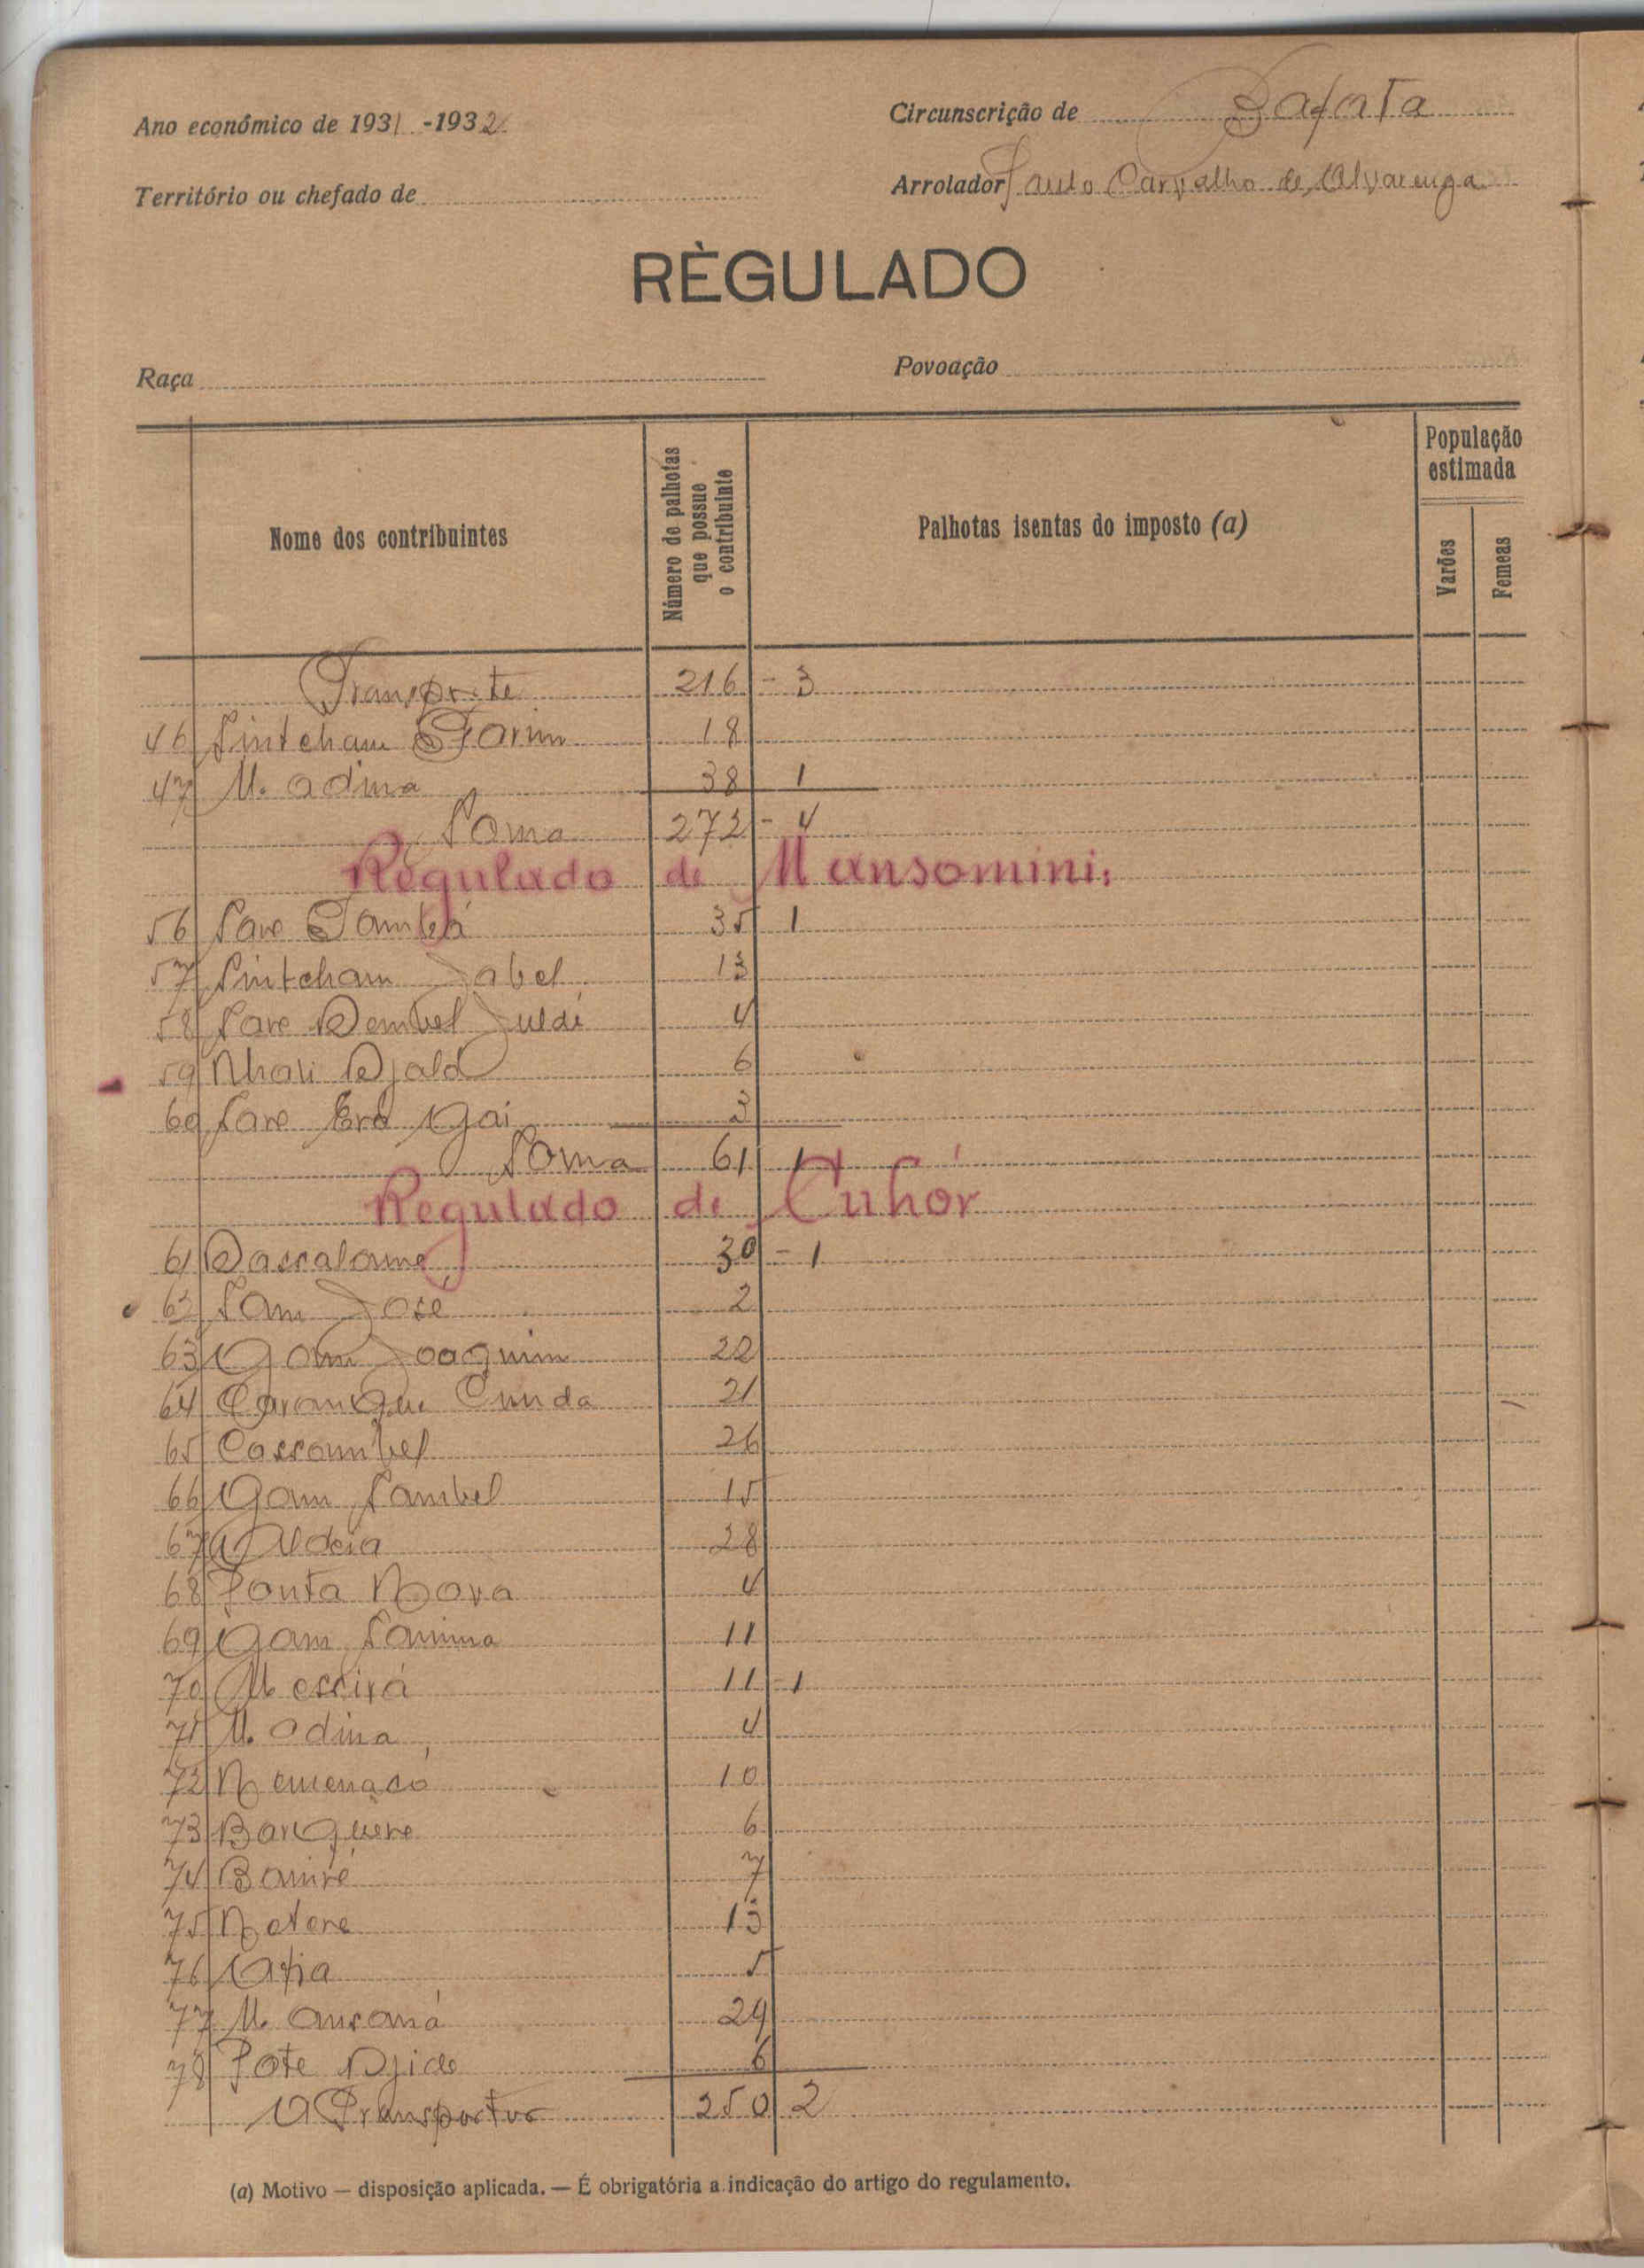 Ano económico de 1931-1932
Circunscrição de Bafata
Território ou chefado de
Arrolador Paulo Carvalho de Alvarenga
RÈGULADO
Raça
Povoação
Nome dos contribuintes
Número de palhotas que possue o contribuinte
Palhotas isentas do imposto (a)
População estimada
Varões
Femeas
Transporte 216 - 3
46 Sintcham Farim 18
47 Madina 38 1
Soma 272 - 4
Regulado de Mansomini
56 Sare Tambá 35 1
57 Sintcham Jabel 13
58 Sare Dembel Juldi 4
59 Nhali Djald 6
60 Sare Gai 3
Soma 61 1
Regulado de Cuhór
61 30 - 1
62 Sam José 2
63 Gam Joaquim 22
64 Cunda 21
65 Cossambel 26
66 Gam Sambel 15
67 Aldeia 28
68 Ponta Nova 4
69 Gam Samma 11
70 Messirá 11 - 1
71 Madina 4
72 10
73 Banguere 6
74 7
75 Natere 13
76 5
77 Mansaná 29
78 Pote Djide 6
A Transportar 250 2
(a) Motivo — disposição aplicada. — É obrigatória a indicação do artigo do regulamento.